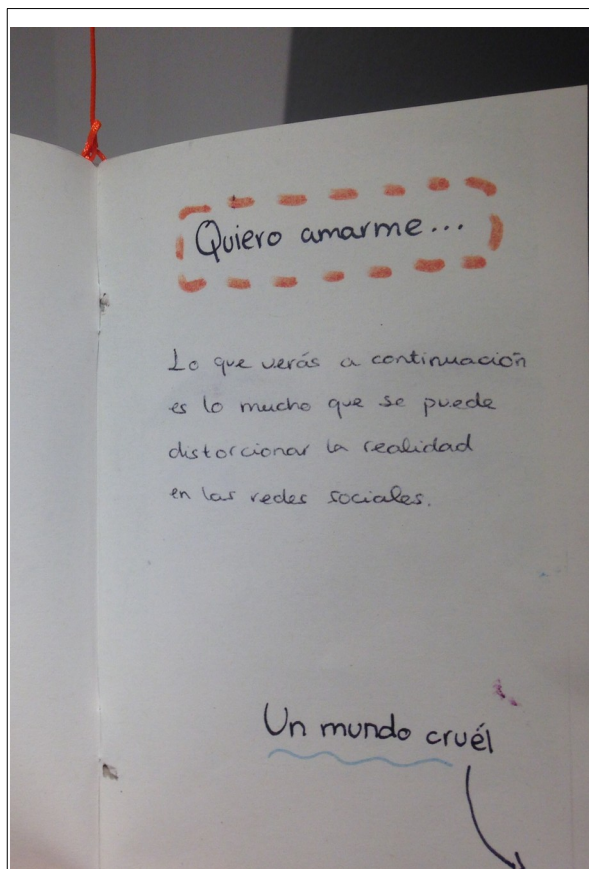 Quiero amarme...
Lo que verás a continuación
es lo mucho que se puede
distorcionar la realidad
en las redes sociales.
Un mundo cruél